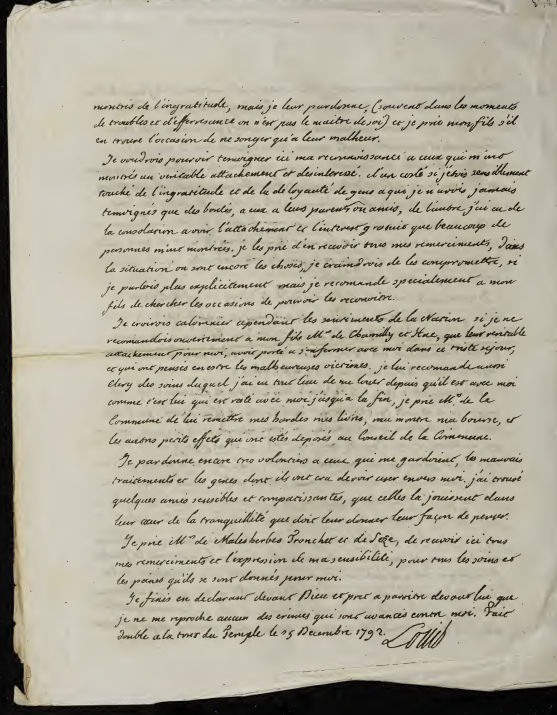 montrés de l'ingratitude, mais je leur pardonne, (souvent dans les moments
de troubles et d'effervescence on n'est pas le maitre de soi) et je prie mon fils s'il
en trouve l'occasion de ne songer qu'a leur malheur.
Je voudrois pouvoir temoigner ici ma reconnaissance a ceux qui m'ont
montrés un veritable attachement et desinteresse. d'un coté si j'etois sensiblement
touché de l'ingratitude et de la deloyauté de gens a qui je n'avois jamais
temoignés que des bontés, a eux a leurs parents ou amis, de l'autre, j'ai eu de
la consolation a voir l'attachement et l'interest gratuit que beaucoup de
personnes m'ont montrés. je les prie d'en recevoir tous mes remerciments, dans
la situation ou sont encore les choses, je craindrois de les compromettre, si
je parlois plus explicitement mais je recomande specialement a mon
fils de chercher les occasions de pouvoir les reconoitre.
Je croirois calomnier cependant les sentiments de la Nation si je ne
recomandois ouvertement a mon fils Mrs de Chamilly et Hue, que leur veritable
attachement pour moi, avoit porté a s'enfermer avec moi dans ce triste sejour,
et qui ont pensés en estre les malheureuses victimes. je lui recomande aussi
Clery des soins duquel j'ai eu tout lieu de me louer depuis qu'il est avec moi
comme c'est lui qui est resté avec moi jusqu'a la fin, je prie Mrs de la
Commune de lui remettre mes hardes mes livres, ma montre ma bourse, et
les autres petits effets qui ont estés deposés au Conseil de la Commune.
Je pardonne encore tres volontiers a ceux qui me gardoient, les mauvais
traitements et les genes dont ils ont cru devoir user envers moi. j'ai trouvé
quelques ames sensibles et compatissantes, que celles la jouissent dans
leur cœur de la tranquillité que doit leur donner leur façon de penser.
Je prie Mrs de Malesherbes Tronchet et de Seze, de recevoir ici tous
mes remerciments et l'expression de ma sensibilité, pour tous les soins et
les peines qu'ils se sont donnés pour moi.
Je finis en declarant devant Dieu et pret a paroitre devant lui que
je ne me reproche aucun des crimes qui sont avancés contre moi. Fait
double a la tour du Temple le 25 Decembre 1792.
Louis